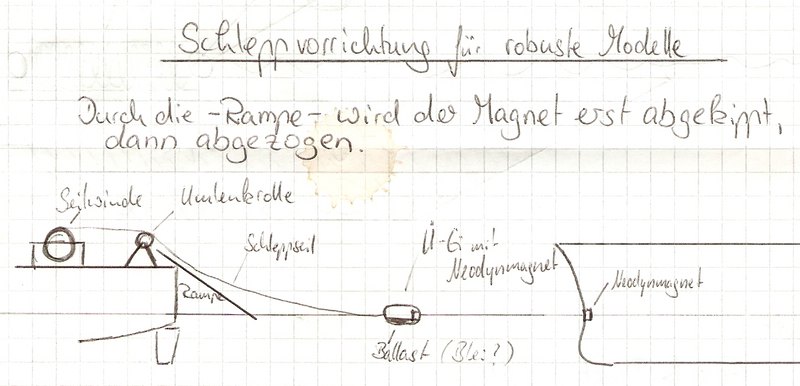 Schleppvorrichtung für robuste Modelle
Durch die -Rampe- wird der Magnet erst abgekippt,
dann abgezogen.
Seilwinde
Umlenkrolle
Schleppseil
Ü-Ei mit
Neodymmagnet
Neodymmagnet
Rampe
Ballast (Blei?)